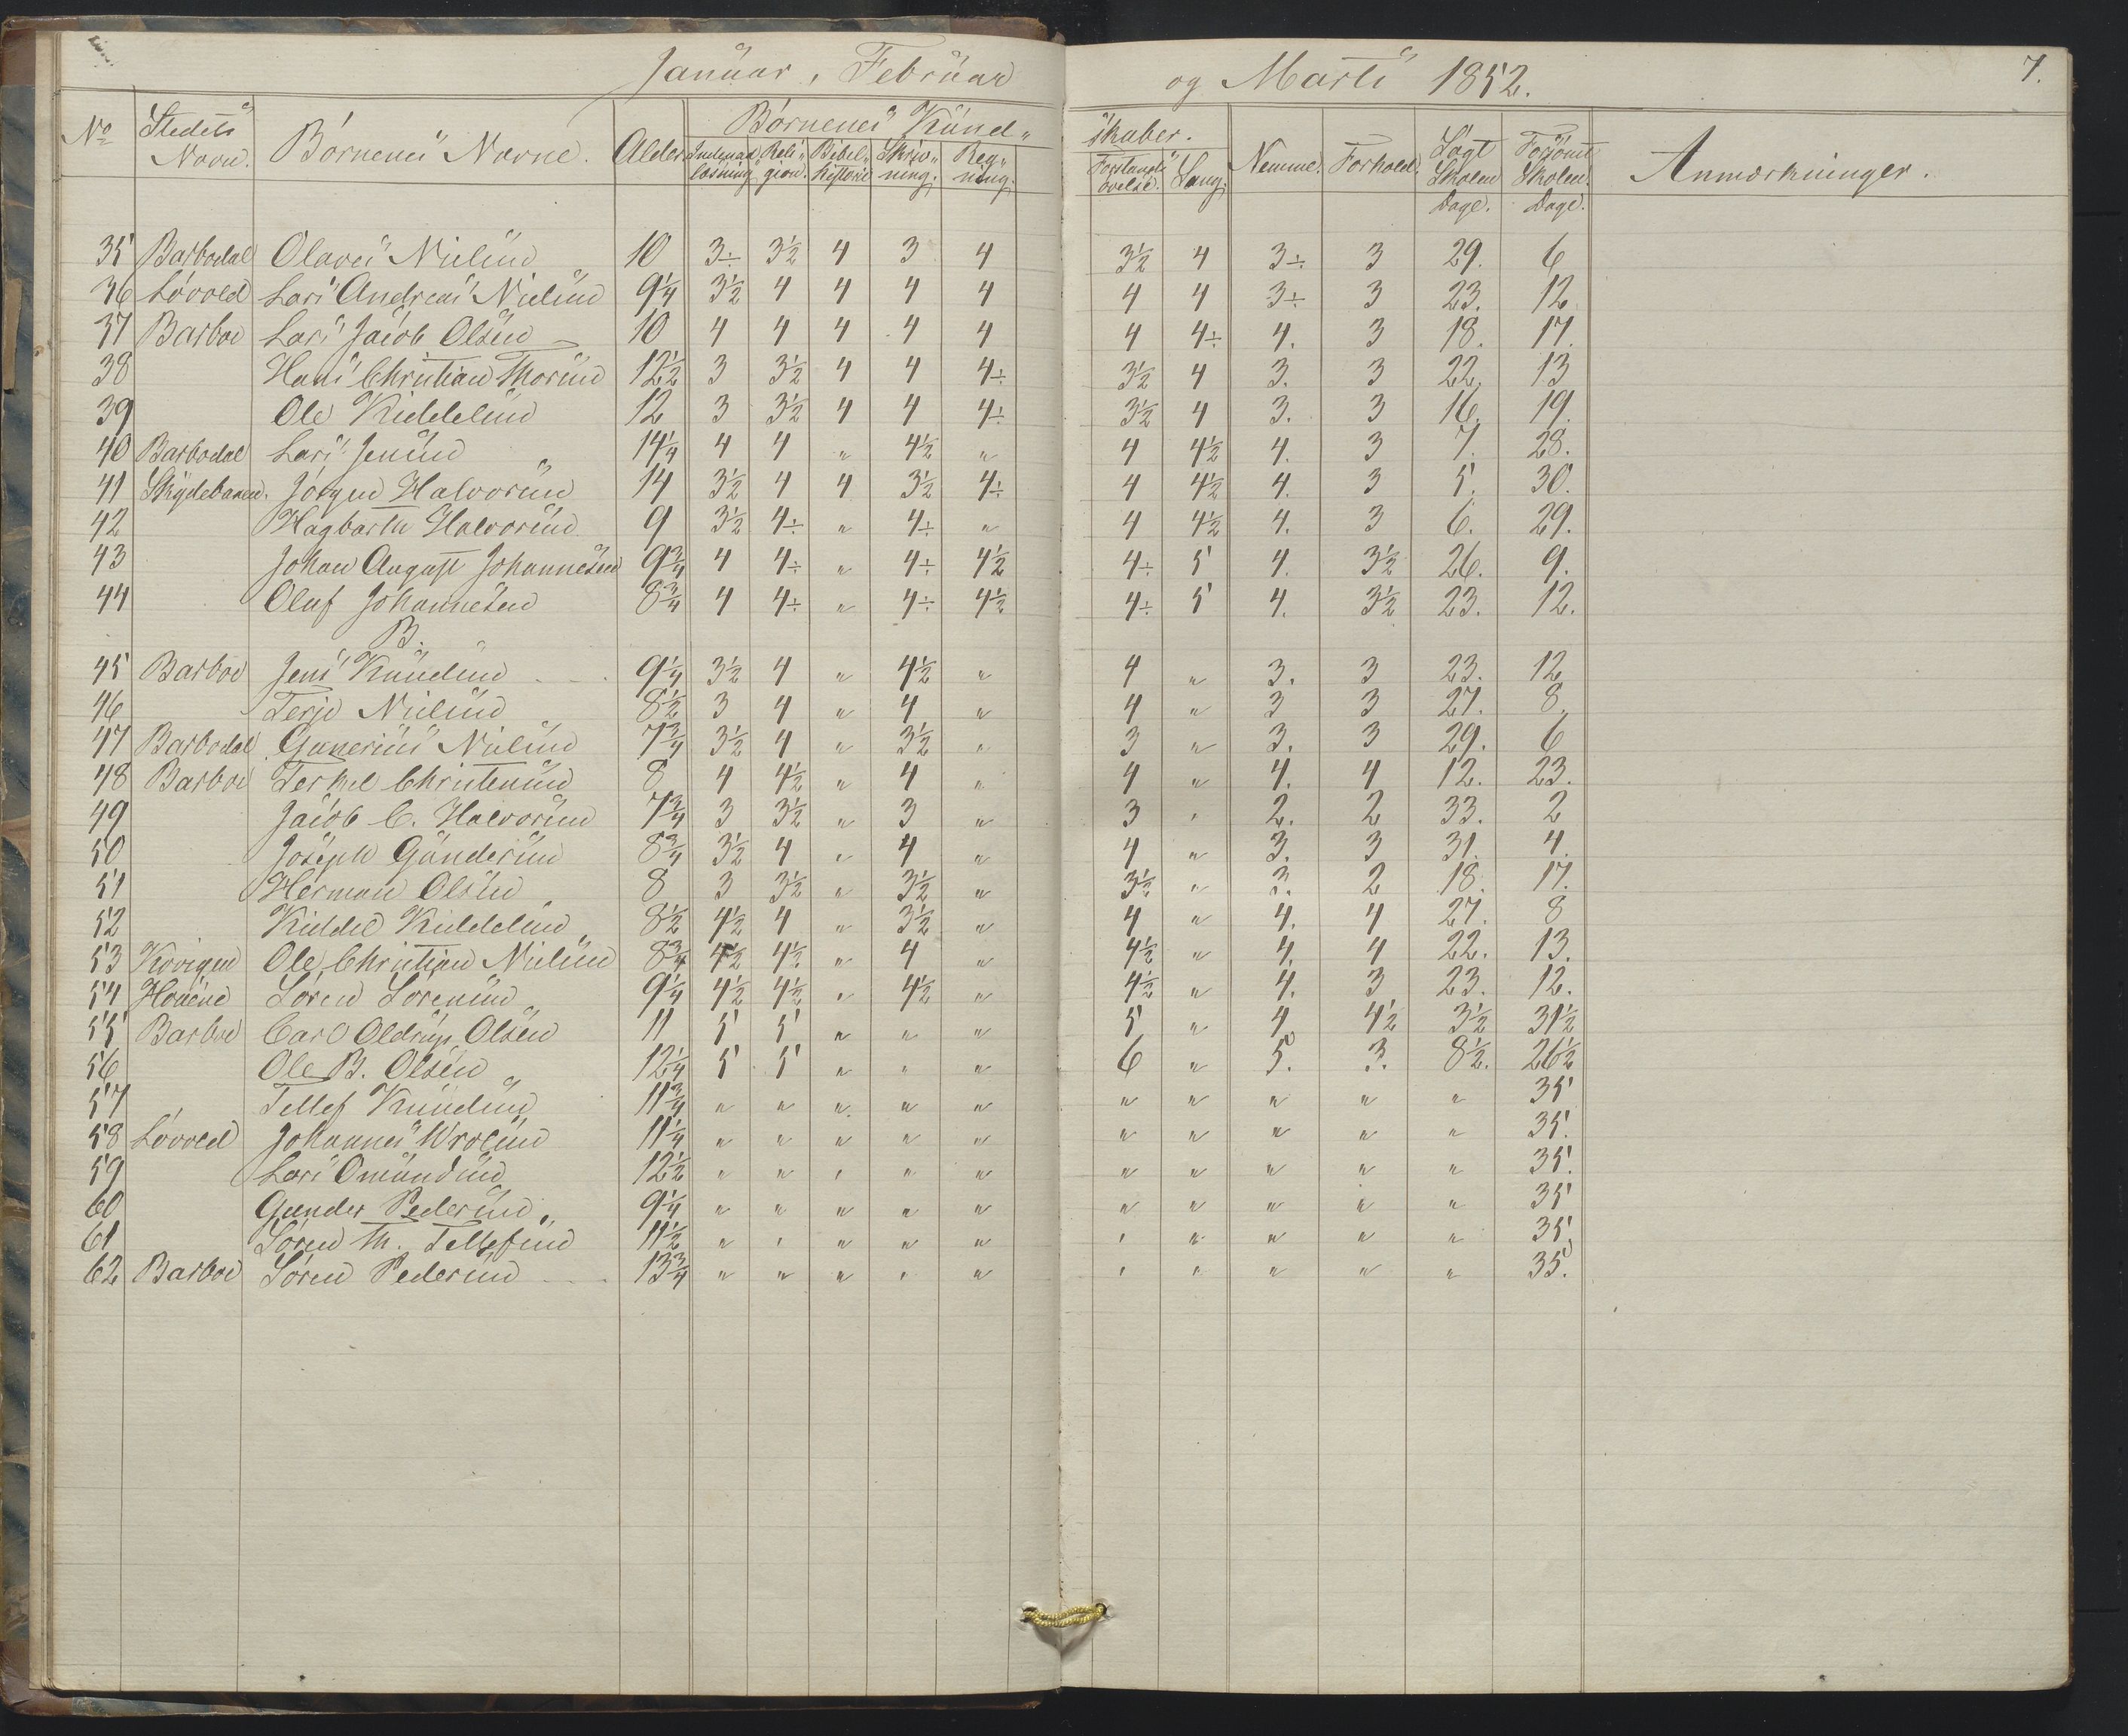 Januar, Februar og Marts 1852. 7.
No Stedets Navn. Børnenes Navne. Alder Børnenes Kund„ skaber. Nemme. Forhold. Søgt Skolen Dage. Forsömt Skolen. Dage. Anmærkninger.
Indenad læsning Reli„ gion. Bibel„ historie Skriv„ ning. Reg„ ning. Forstands øvelse. Sang.
35 Barbodal Olaves Nielsen 10 3÷ 3½ 4 3 4 3½ 4 3÷ 3 29. 6
36 Løvold Lars Andreas Nielsen 9¼ 3½ 4 4 4 4 4 4 3÷ 3 23. 12
37 Barboe Lars Jacob Olsen 10 4 4 4 4 4 4 4÷ 4. 3 18. 17.
38 Hans Christian Thorsen 12½ 3 3½ 4 4 4÷ 3½ 4 3. 3 22. 13
39 Ole Kiddelsen 12 3 3½ 4 4 4÷ 3½ 4 3. 3 16. 19.
40 Barbodal Lars Jensen 14¼ 4 4 „ 4½ „ 4 4½ 4. 3 7. 28.
41 Skydebanen. Jörgen Halvorsen 14 3½ 4 4 3½ 4÷ 4 4½ 4. 3 5. 30.
42 Hagbarth Halvorsen 9 3½ 4÷ „ 4÷ „ 4 4½ 4. 3 6. 29.
43 Johan August Johannesen 9¾ 4 4÷ „ 4÷ 4½ 4÷ 5 4. 3½ 26. 9.
44 Oluf Johannesen 8¾ 4 4÷ „ 4÷ 4½ 4÷ 5 4. 3½ 23. 12.
B.
45 Barboe Jens Knudsen 9¼ 3½ 4 „ 4½ „ 4 „ 3. 3 23. 12
46 Terje Nielsen 8½ 3 4 „ 4 „ 4 „ 3 3 27. 8.
47 Barbodal Gunerius Nielsen 7¾ 3½ 4 „ 3½ „ 3 „ 3. 3 29. 6
48 Barboe Terkel Christensen 8 4 4½ „ 4 „ 4 „ 4. 4 12. 23.
49 Jacob C. Halvorsen 7¾ 3 3½ „ 3 „ 3 „ 2. 2 33. 2
50 Joseph Gundersen 8¾ 3½ 4 „ 4 „ 4 „ 3. 3 31. 4.
51 Herman Olsen 8 3 3½ „ 3½ „ 3½ „ 3. 2 18. 17.
52 Kiddel Kiddelsen 8½ 4½ 4 „ 3½ „ 4 „ 4. 4 27. 8
53 Ole Christian Nielsen 8¾ 4½ 4½ „ 4 „ 4½ „ 4. 4 22. 13.
54 Søren Sørensen 9¼ 4½ 4½ „ 4½ „ 4½ „ 4. 3 23. 12.
55 Barboe Carl Oldrup Olsen 11 5 5 „ „ „ 5 „ 4 4½ 3½ 31½
56 Ole B. Olsen 12¼ 5 5 „ „ „ 6 „ 5. 3. 8½. 26½
57 Tellef Knudsen 11¾ „ „ „ „ „ „ „ „ „ „ 35
58 Løvold Johannes Wrolsen 11¼ „ „ „ „ „ „ „ „ „ „ 35.
59 Lars Omundsen 12½ „ „ „ „ „ „ „ „ „ „ 35.
60 Gunder Pedersen 9¼ „ „ „ „ „ „ „ „ „ „ 35
61 Søren Th. Tellefsen 11½ „ „ „ „ „ „ „ „ „ „ 35.
62 Barboe Søren Pedersen 13¾ „ „ „ „ „ „ „ „ „ „ 35.